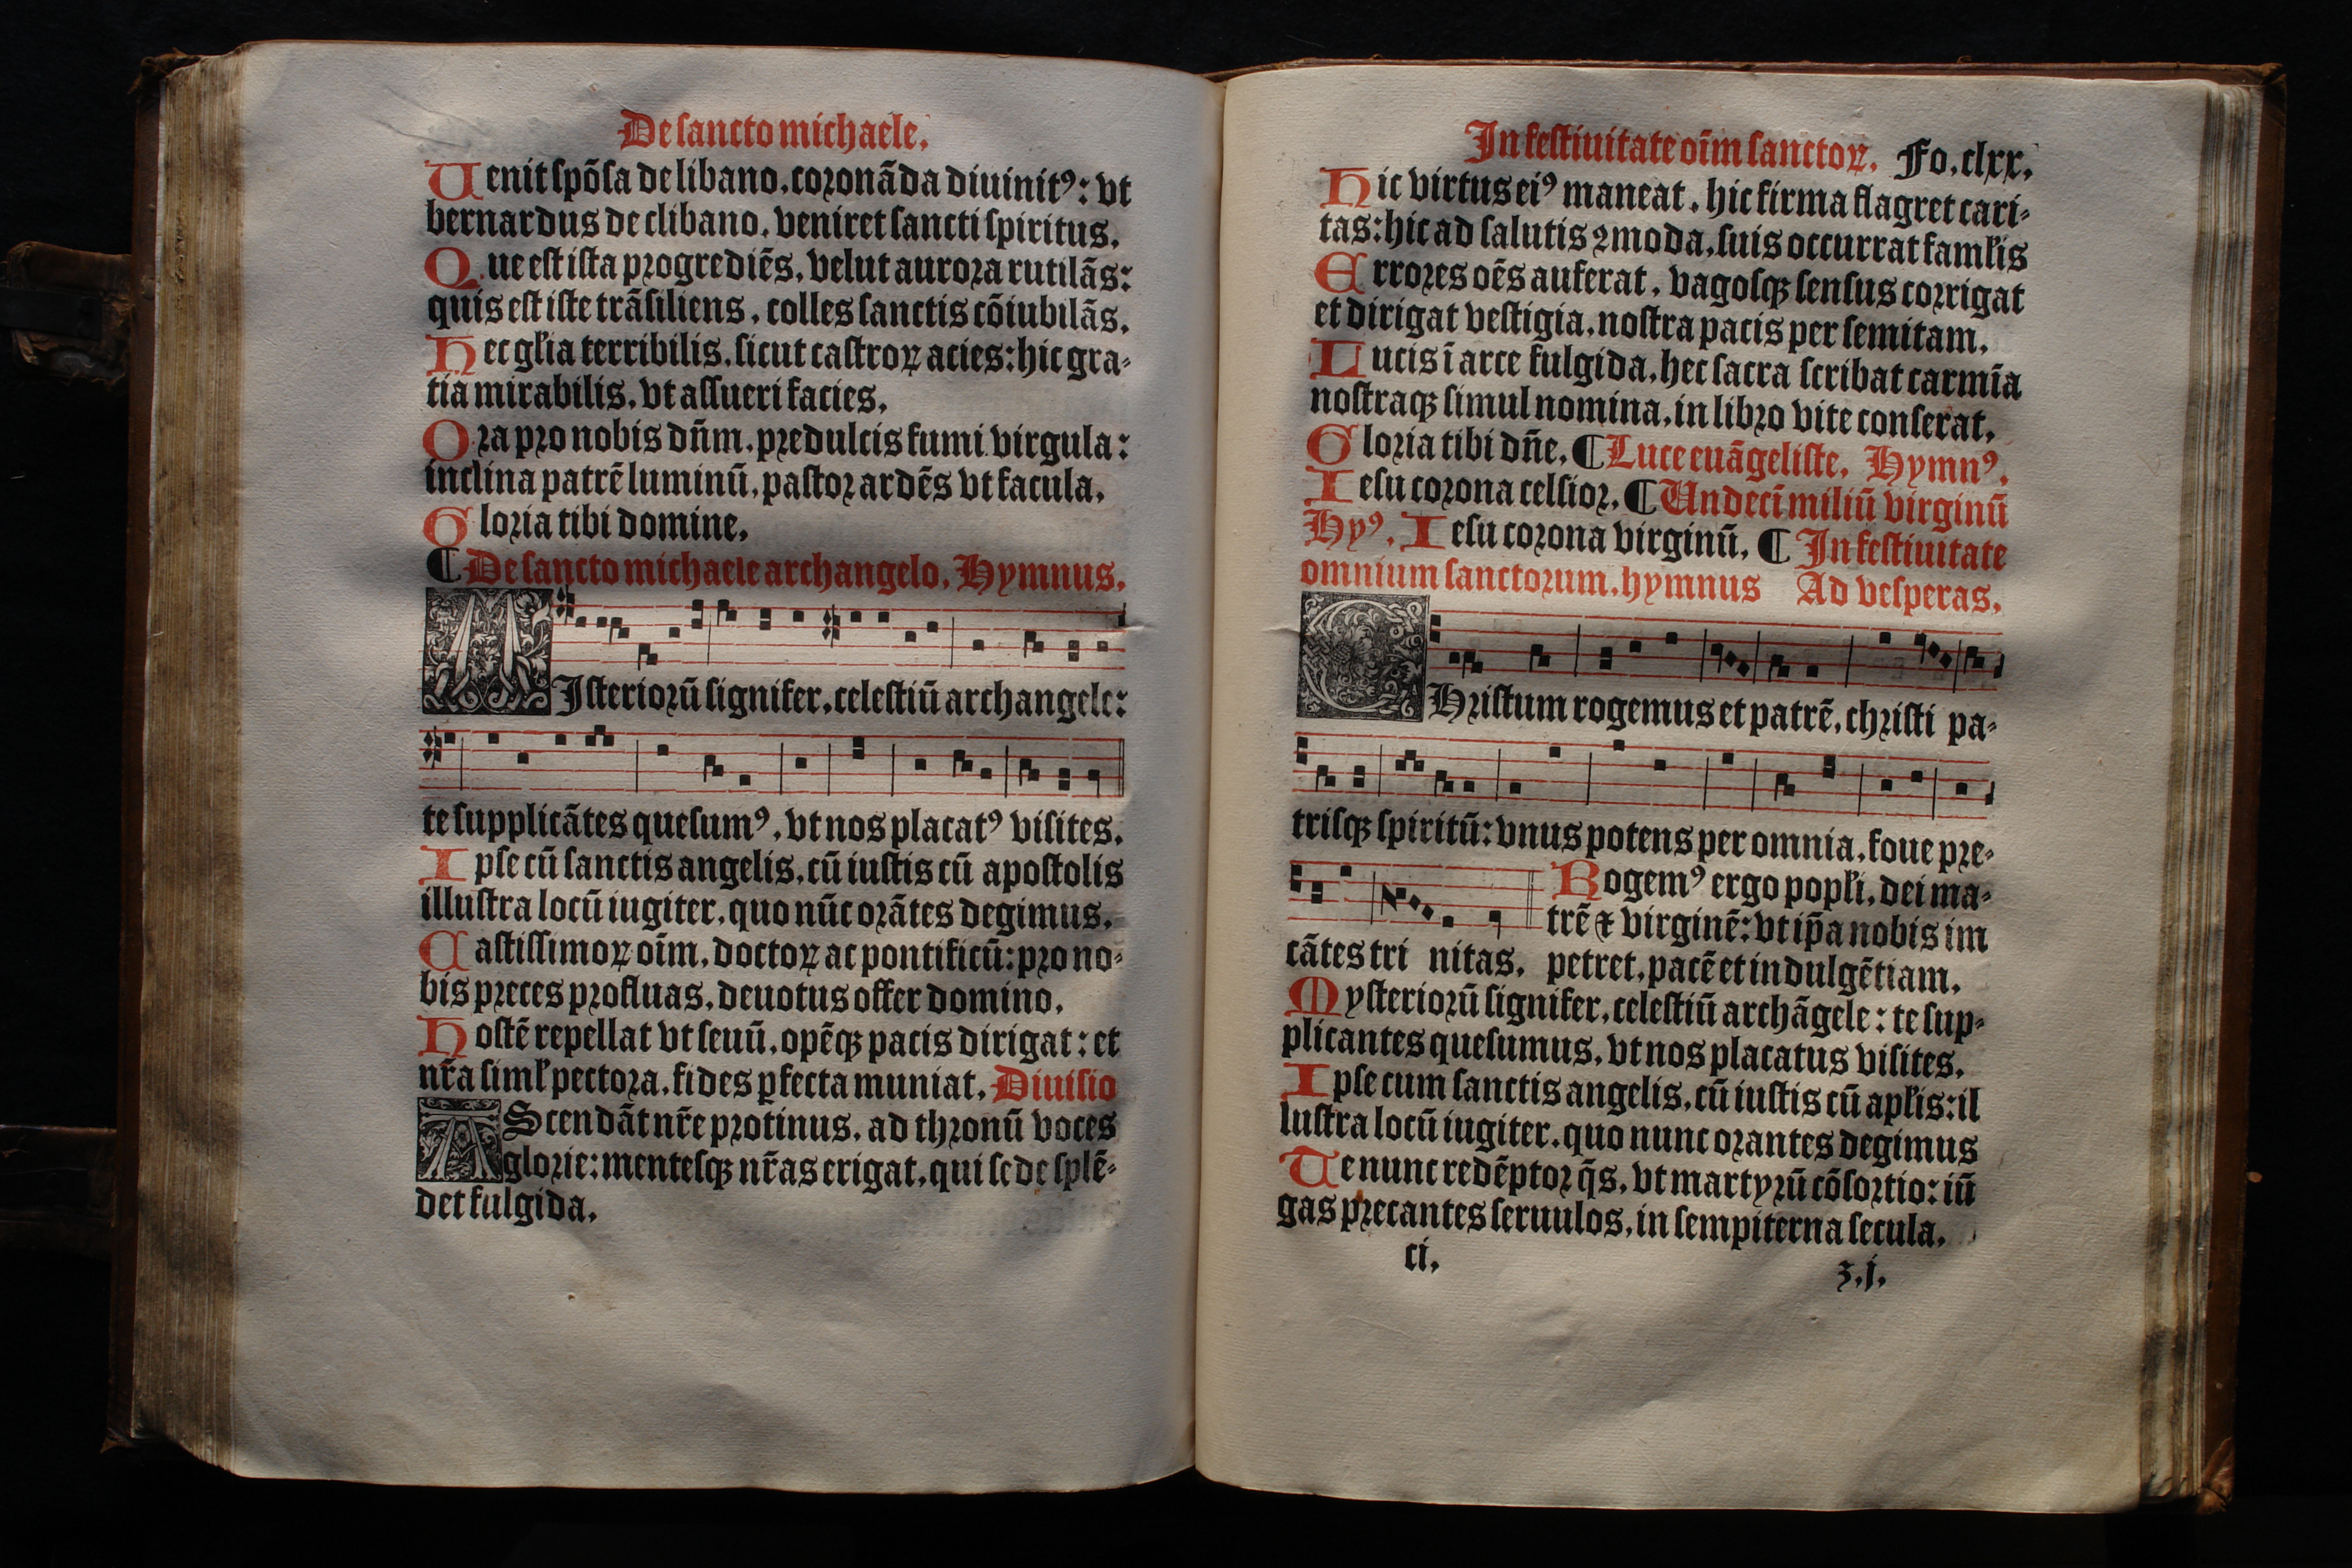 De sancto michaele.
Uenit spõsa de libano. coronãda diuinitꝰ: vt
bernardus de clibano. veniret sancti spiritus.
Que est ista progrediẽs. velut aurora rutilãs:
quis est iste trãsiliens. colles sanctis cõiubilãs.
Hec gl̃ia terribilis. sicut castroꝝ acies: hic gra-
tia mirabilis. vt assueri facies.
Ora pro nobis dñm. predulcis fumi virgula:
inclina patrẽ luminũ. pastor ardẽs vt facula.
Gloria tibi domine.
¶ De sancto michaele archangelo. Hymnus.
MIsteriorũ signifer. celestiũ archangele:
te supplicãtes quesumꝰ. vt nos placatꝰ visites.
Ipse cũ sanctis angelis. cũ iustis cũ apostolis
illustra locũ iugiter. quo nũc orãtes degimus.
Castissimoꝝ oĩm. doctoꝝ ac pontificũ: pro no-
bis preces profluas. deuotus offer domino.
Hostẽ repellat vt seuũ. opẽqꝫ pacis dirigat: et
nr̃a siml̃ pectora. fides ꝑfecta muniat. Diuisio
AScendãt nr̃e protinus. ad thronũ voces
glorie: mentesqꝫ nr̃as erigat. qui sede splẽ-
det fulgida.
In festiuitate oĩm sanctoꝝ. Fo. clxx.
Hic virtus eiꝰ maneat. hic firma flagret cari-
tas: hic ad salutis ꝯmoda. suis occurrat faml̃is
Errores oẽs auferat. vagosqꝫ sensus corrigat
et dirigat vestigia. nostra pacis per semitam.
Lucis ĩ arce fulgida. hec sacra scribat carmĩa
nostraqꝫ simul nomina. in libro vite conserat.
Gloria tibi dñe. ¶ Luce euãgeliste. Hymnꝰ.
Iesu corona celsior. ¶ Undecĩ miliũ virginũ
Hyꝰ. Iesu corona virginũ. ¶ In festiuitate
omnium sanctorum. hymnus Ad vesperas.
CHristum rogemus et patrẽ. christi pa-
trisqꝫ spiritũ: vnus potens per omnia. foue pre-
Rogemꝰ ergo popl̃i. dei ma-
trẽ ⁊ virginẽ: vt ip̃a nobis im
cãtes tri nitas. petret. pacẽ et indulgẽtiam.
Mysteriorũ signifer. celestiũ archãgele: te sup-
plicantes quesumus. vt nos placatus visites.
Ipse cum sanctis angelis. cũ iustis cũ apl̃is: il
lustra locũ iugiter. quo nunc orantes degimus
Te nunc redẽptor q̃s. vt martyrũ cõsortio: iũ
gas precantes seruulos. in sempiterna secula.
ci.
z.j.